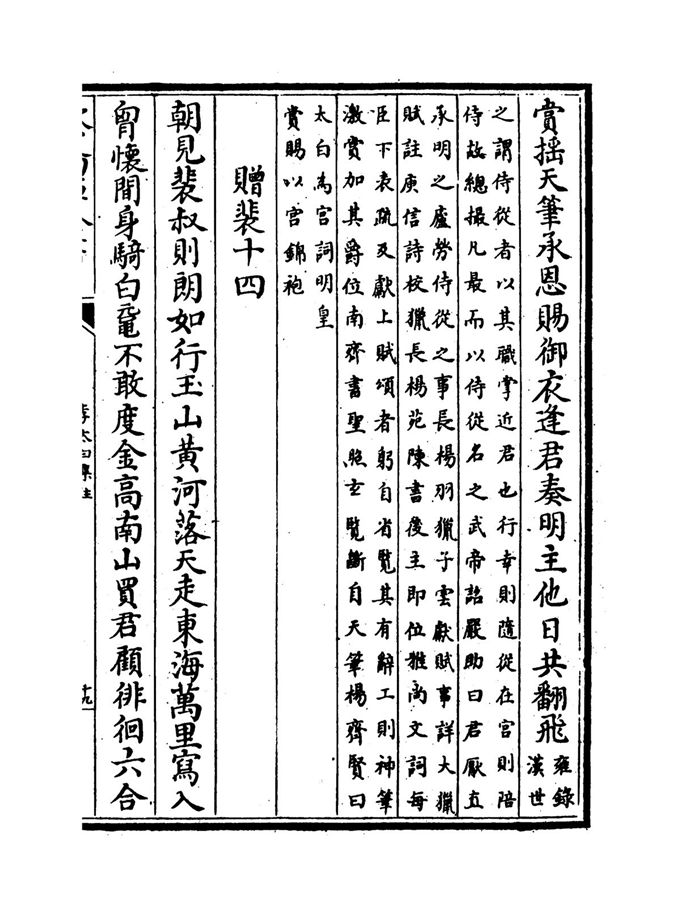 賞揺天筆承恩賜御衣逢君奏明主他日共翻飛雍錄漢世
之謂侍從者以其職掌近君也行幸則隨從在宮則陪
侍故總撮凡最而以侍從名之武帝詔嚴助曰君厭直
承明之廬勞侍從之事長楊羽獵子雲獻賦事詳大獵
賦註庾信詩校獵長楊苑陳書後主即位雅尚文詞每
臣下表疏及獻上賦頌者躬自省覽其有辭工則神筆
激賞加其爵位南齊書聖照玄覽斷自天筆楊齊賢曰
太白為宮詞明皇
賞賜以宮錦袍
贈裴十四
朝見裴叔則朗如行玉山黃河落天走東海萬里寫入
胷懷間身騎白黿不敢度金高南山買君顧徘徊六合